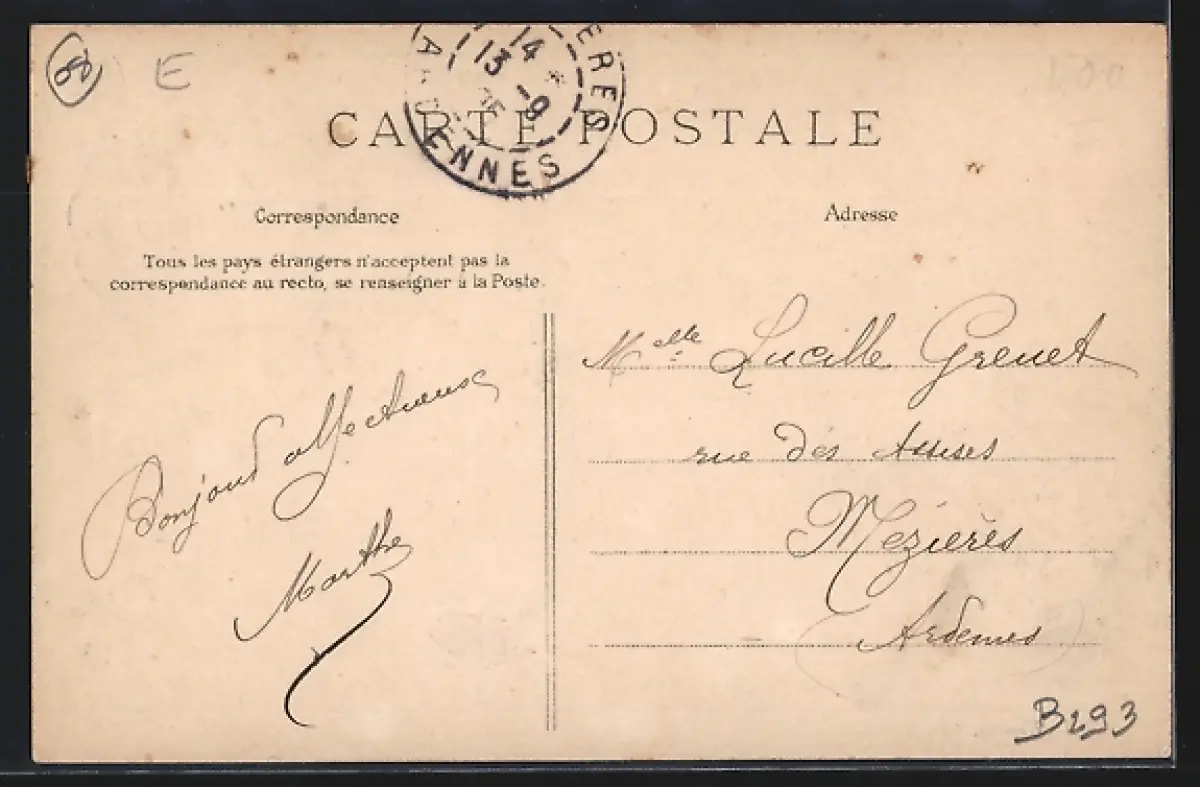 08
E
14
13 -9
ERES
ARDENNES
CARTE POSTALE
Correspondance
Adresse
Tous les pays étrangers n'acceptent pas la
correspondance au recto, se renseigner à la Poste.
Bonjour affectueuse
Marthe
Melle Lucille Grenet
rue des Assises
Mézières
Ardennes
B293